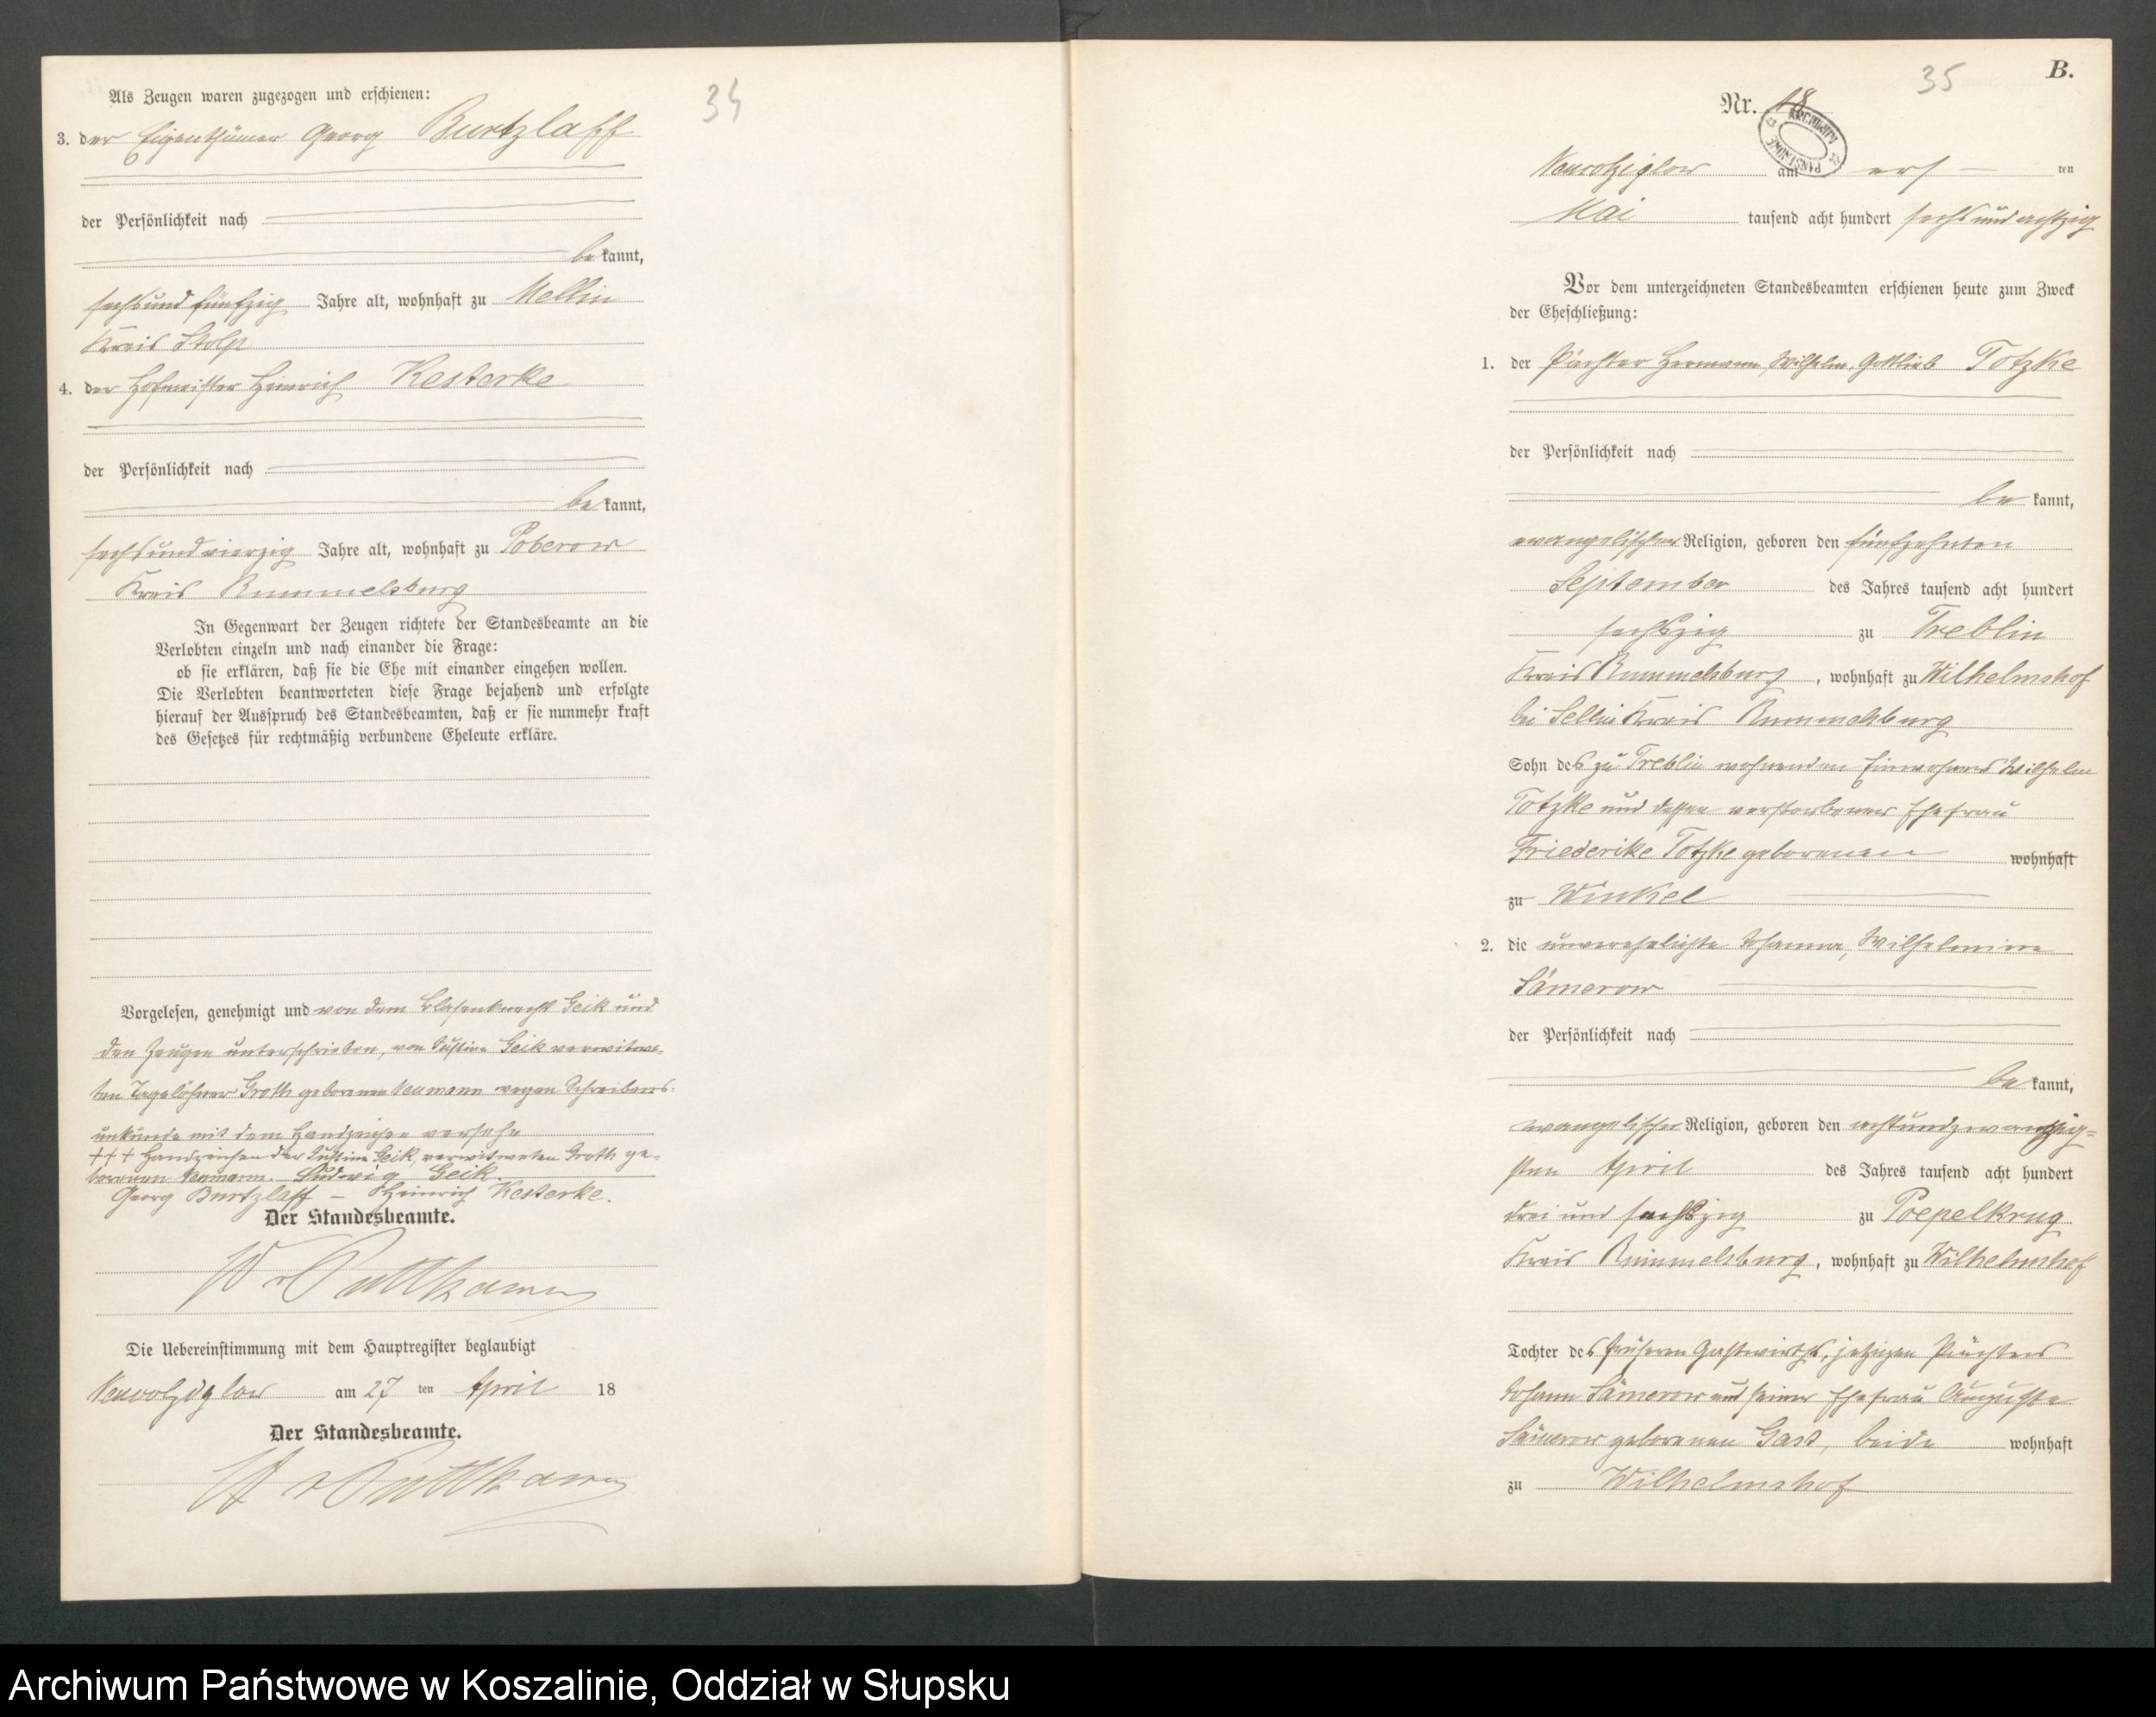 Als Zeugen waren zugezogen und erschienen:
34
3. der Eigenthümer Georg Burtzlaff
der Persönlichkeit nach
bekannt,
sechsundfünfzig Jahre alt, wohnhaft zu Mellin
Kreis Stolp
4. der Hofmeister Heinrich Kesterke
der Persönlichkeit nach
bekannt,
sechsundvierzig Jahre alt, wohnhaft zu Poberow
Kreis Rummelsburg
In Gegenwart der Zeugen richtete der Standesbeamte an die
Verlobten einzeln und nach einander die Frage:
ob sie erklären, daß sie die Ehe mit einander eingehen wollen.
Die Verlobten beantworteten diese Frage bejahend und erfolgte
hierauf der Ausspruch des Standesbeamten, daß er sie nunmehr kraft
des Gesetzes für rechtmäßig verbundene Eheleute erkläre.
Vorgelesen, genehmigt und von dem Geik und
den Zeugen unterschrieben, von Justine Geik verwitwe-
ten Tagelöhner Groth geborenen Neumann wegen Schreibens-
unkunde mit dem Handzeichen versehen
+++ Handzeichen der Justine Geik, verwitweten Groth ge-
borenen Neumann. Ludwig Geik.
Georg Burtzlaff – Heinrich Kesterke.
Der Standesbeamte.
W v Puttkamer
Die Uebereinstimmung mit dem Hauptregister beglaubigt
Neukolziglow am 27 ten April 18
Der Standesbeamte.
W v Puttkamer
35
B.
Nr. 18
ARCHIWUM PAŃSTWOWE
Neukolziglow am ers- ten
Mai tausend acht hundert sechs und achtzig
Vor dem unterzeichneten Standesbeamten erschienen heute zum Zweck
der Eheschließung:
1. der Pächter Hermann, Wilhelm, Gottlieb Totzke
der Persönlichkeit nach
bekannt,
evangelischer Religion, geboren den fünfzehnten
September des Jahres tausend acht hundert
sechszig zu Treblin
Kreis Rummelsburg, wohnhaft zu Wilhelmshof
bei Sellin Kreis Rummelsburg
Sohn des zu Treblin wohnenden Einwohners Wilhelm
Totzke und dessen verstorbener Ehefrau
Friederike Totzke geborenen wohnhaft
zu Winkel
2. die unverehelichte Johanna, Wilhelmine
Sämerow
der Persönlichkeit nach
bekannt,
evangelischer Religion, geboren den achtundzwanzig-
sten April des Jahres tausend acht hundert
drei und sechszig zu Poepelkrug
Kreis Rummelsburg, wohnhaft zu Wilhelmshof
Tochter des früheren Gastwirths, jetzigen Pächters
Johann Sämerow und seiner Ehefrau Auguste
Sämerow geborenen Gast, beide wohnhaft
zu Wilhelmshof
Archiwum Państwowe w Koszalinie, Oddział w Słupsku